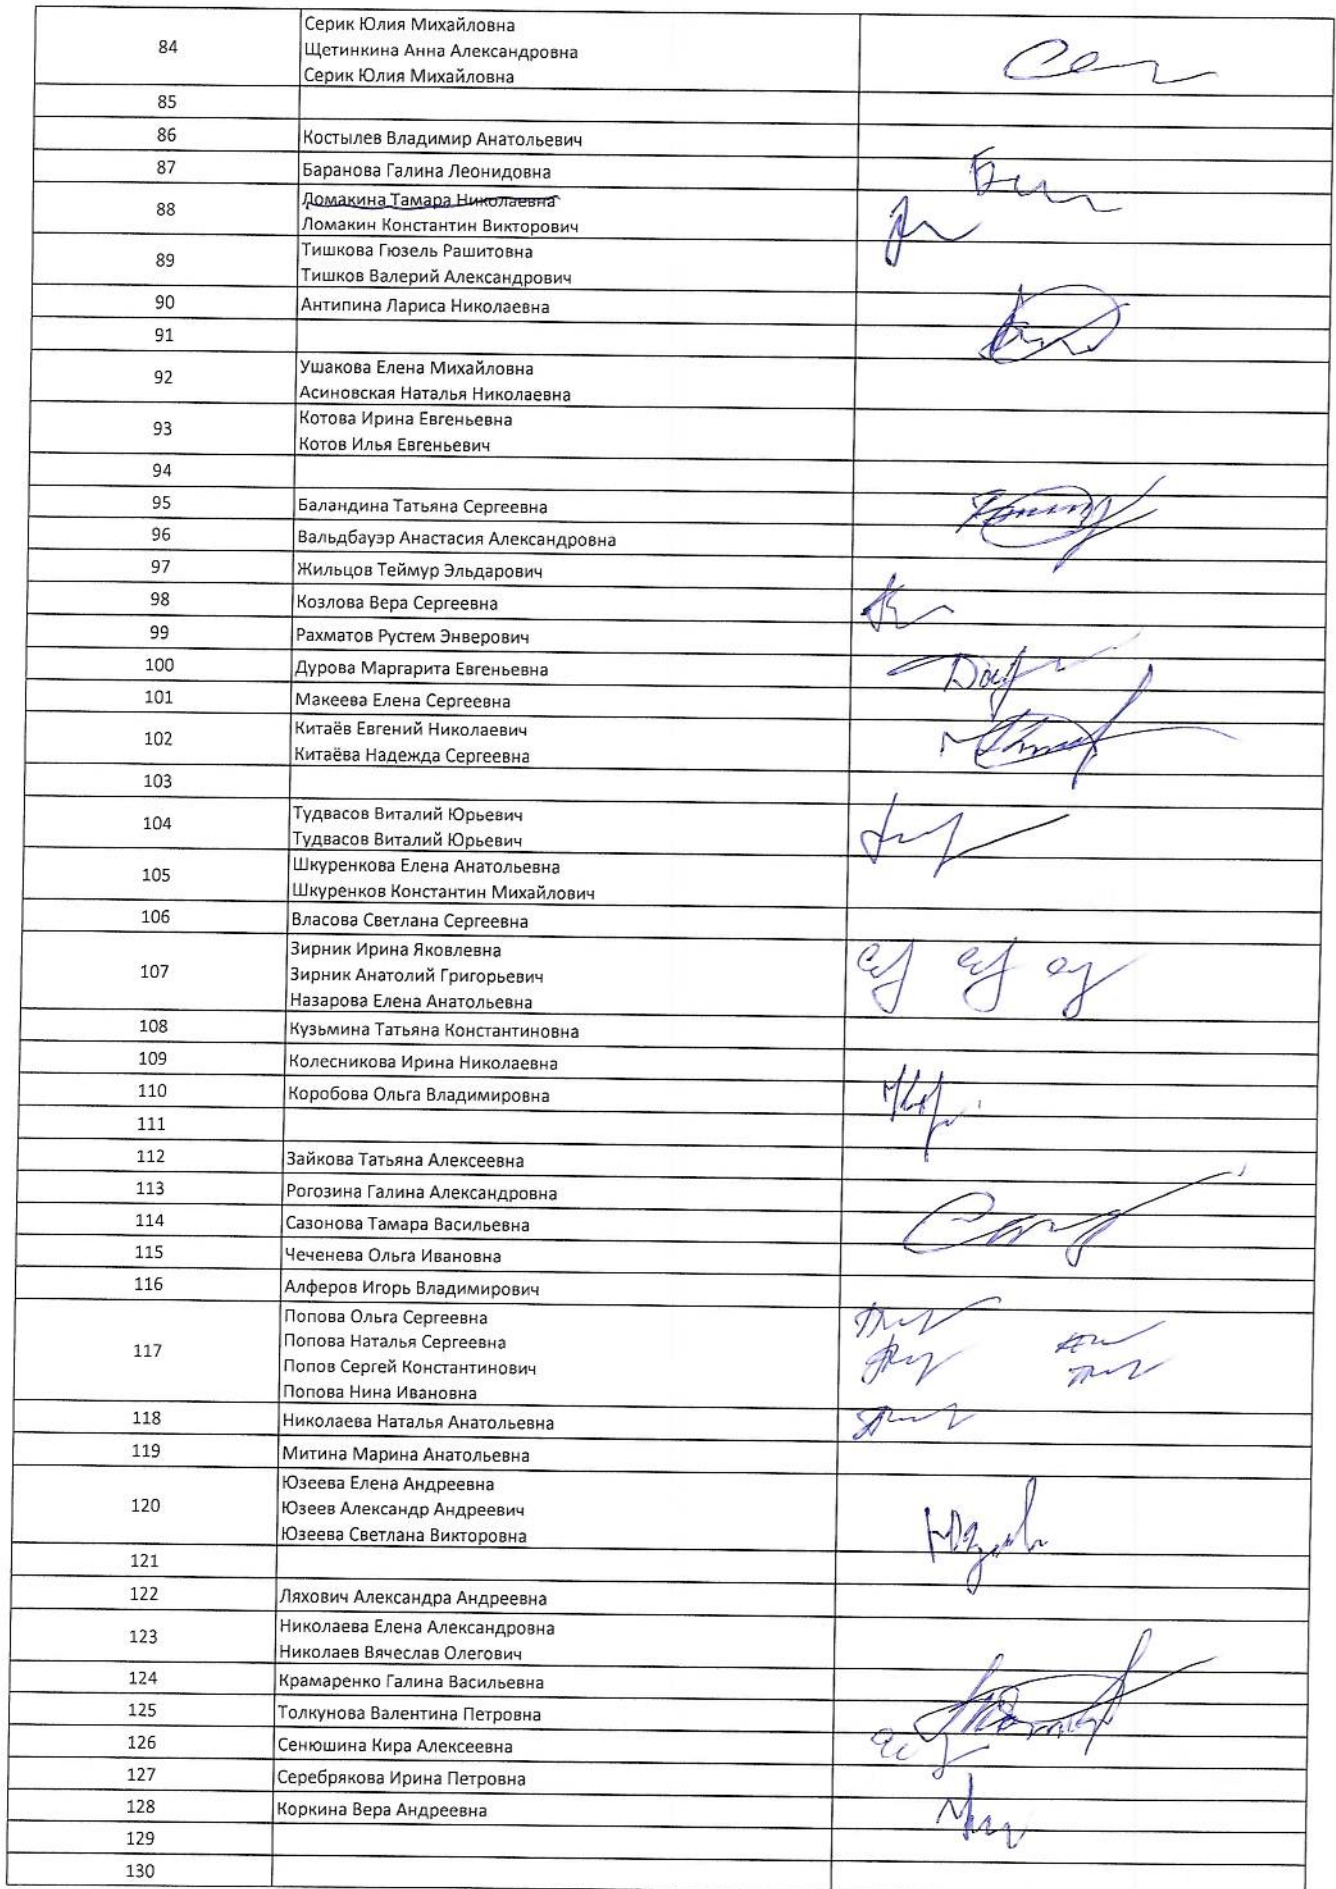 84
Серик Юлия Михайловна
Щетинкина Анна Александровна
Серик Юлия Михайловна
85
86 Костылев Владимир Анатольевич
87 Баранова Галина Леонидовна
88
Ломакина Тамара Николаевна
Ломакин Константин Викторович
89
Тишкова Гюзель Рашитовна
Тишков Валерий Александрович
90 Антипина Лариса Николаевна
91
92
Ушакова Елена Михайловна
Асиновская Наталья Николаевна
93
Котова Ирина Евгеньевна
Котов Илья Евгеньевич
94
95 Баландина Татьяна Сергеевна
96 Вальдбауэр Анастасия Александровна
97 Жильцов Теймур Эльдарович
98 Козлова Вера Сергеевна
99 Рахматов Рустем Энверович
100 Дурова Маргарита Евгеньевна
101 Макеева Елена Сергеевна
102
Китаёв Евгений Николаевич
Китаёва Надежда Сергеевна
103
104
Тудвасов Виталий Юрьевич
Тудвасов Виталий Юрьевич
105
Шкуренкова Елена Анатольевна
Шкуренков Константин Михайлович
106 Власова Светлана Сергеевна
107
Зирник Ирина Яковлевна
Зирник Анатолий Григорьевич
Назарова Елена Анатольевна
108 Кузьмина Татьяна Константиновна
109 Колесникова Ирина Николаевна
110 Коробова Ольга Владимировна
111
112 Зайкова Татьяна Алексеевна
113 Рогозина Галина Александровна
114 Сазонова Тамара Васильевна
115 Чеченева Ольга Ивановна
116 Алферов Игорь Владимирович
117
Попова Ольга Сергеевна
Попова Наталья Сергеевна
Попов Сергей Константинович
Попова Нина Ивановна
118 Николаева Наталья Анатольевна
119 Митина Марина Анатольевна
120
Юзеева Елена Андреевна
Юзеев Александр Андреевич
Юзеева Светлана Викторовна
121
122 Ляхович Александра Андреевна
123
Николаева Елена Александровна
Николаев Вячеслав Олегович
124 Крамаренко Галина Васильевна
125 Толкунова Валентина Петровна
126 Сенюшина Кира Алексеевна
127 Серебрякова Ирина Петровна
128 Коркина Вера Андреевна
129
130